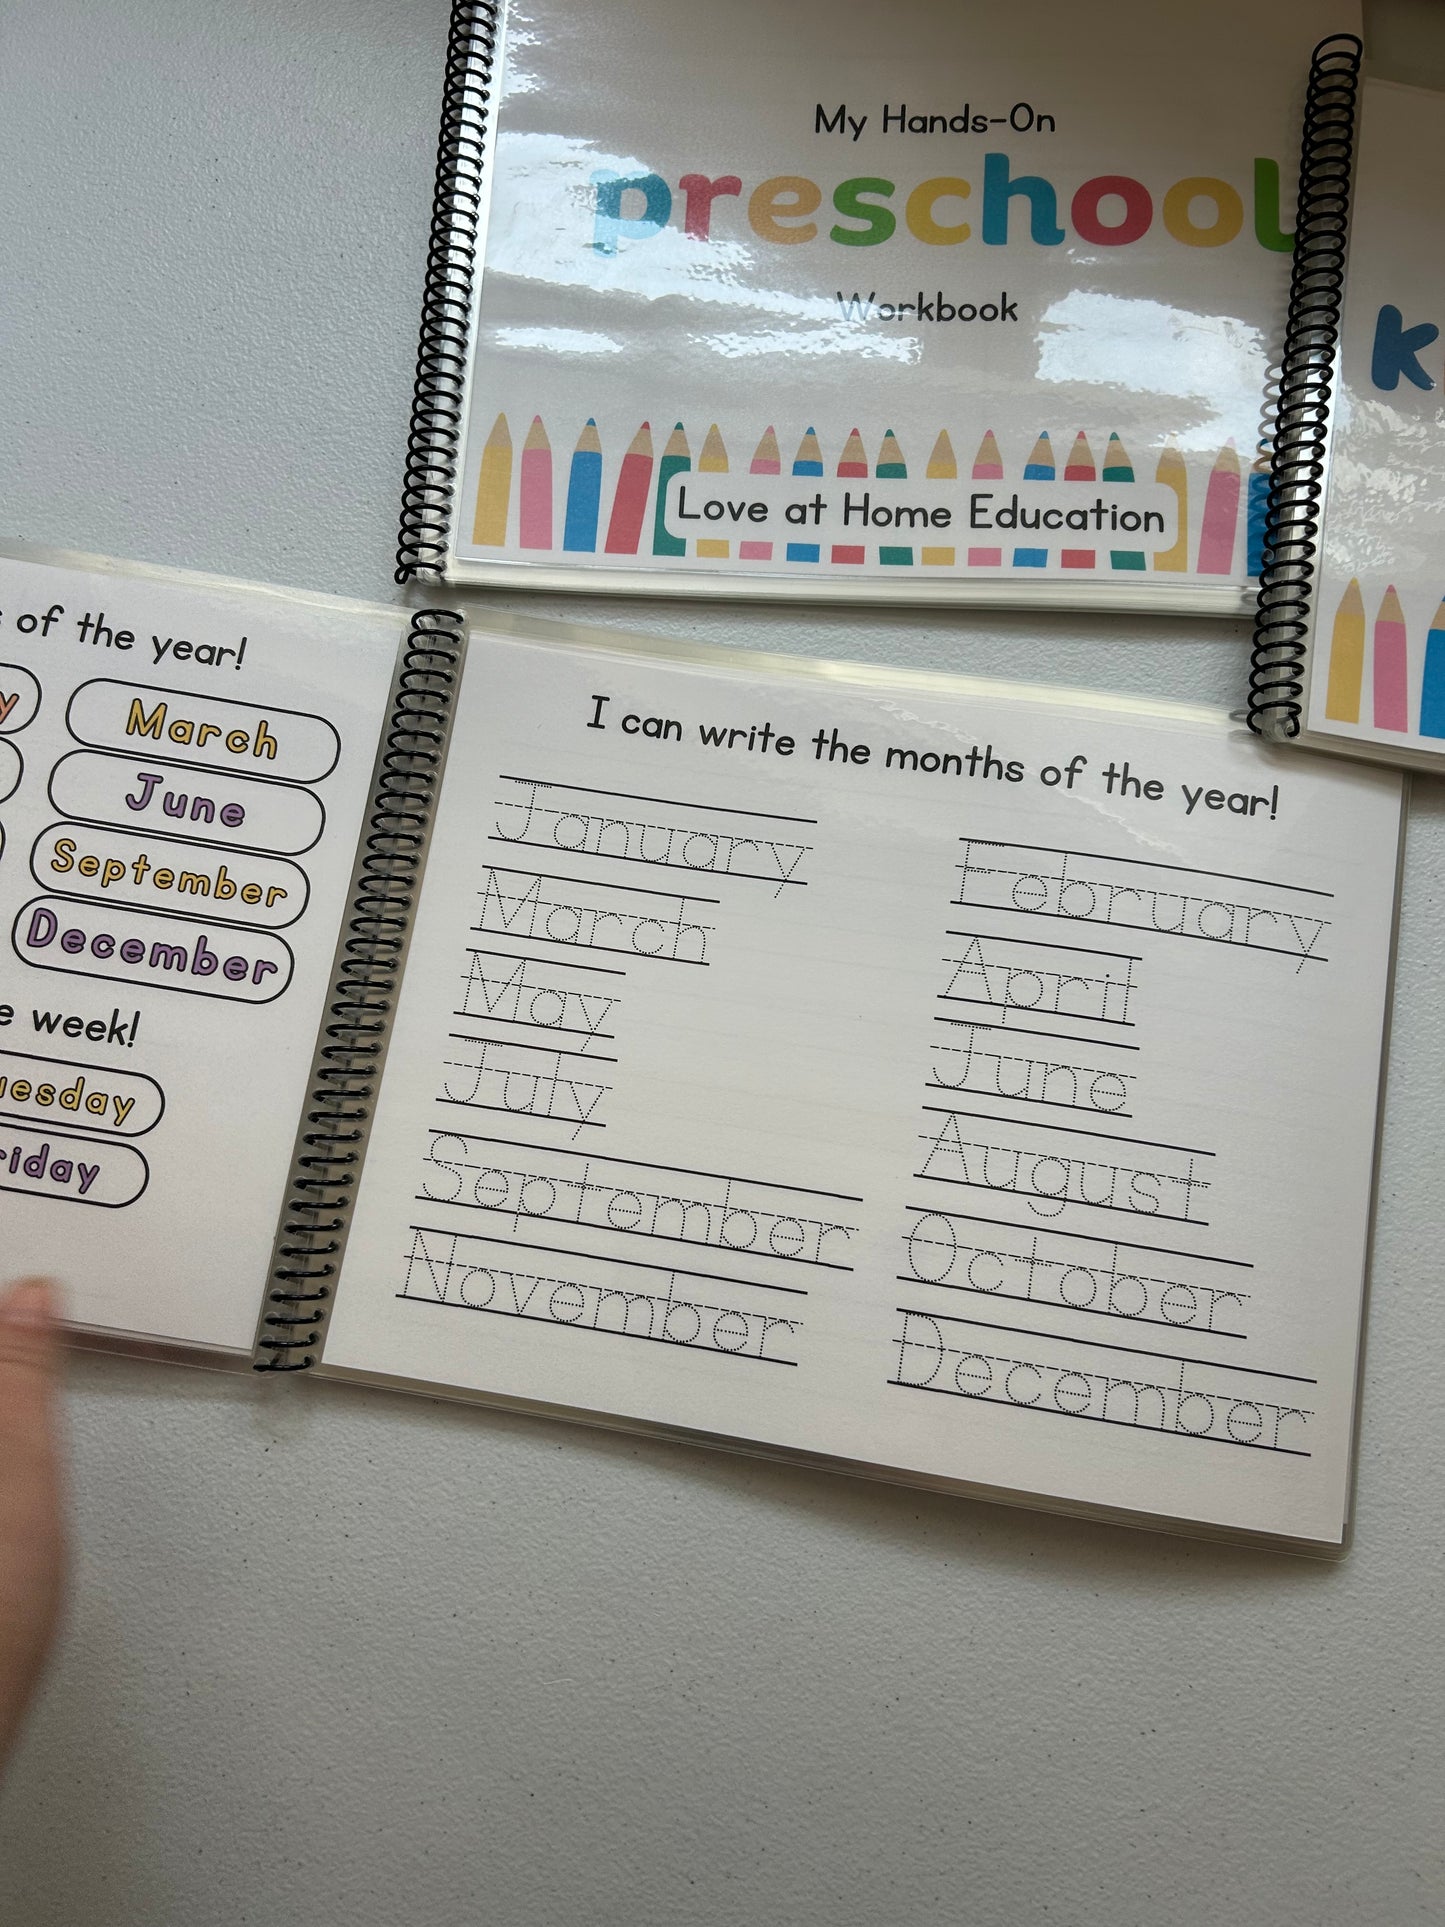 My Hands-On
preschool
Workbook
Love at Home Education
of the year!
March
June
September
December
week!
I can write the months of the year!
January
February
March
April
May
June
July
August
September
October
November
December